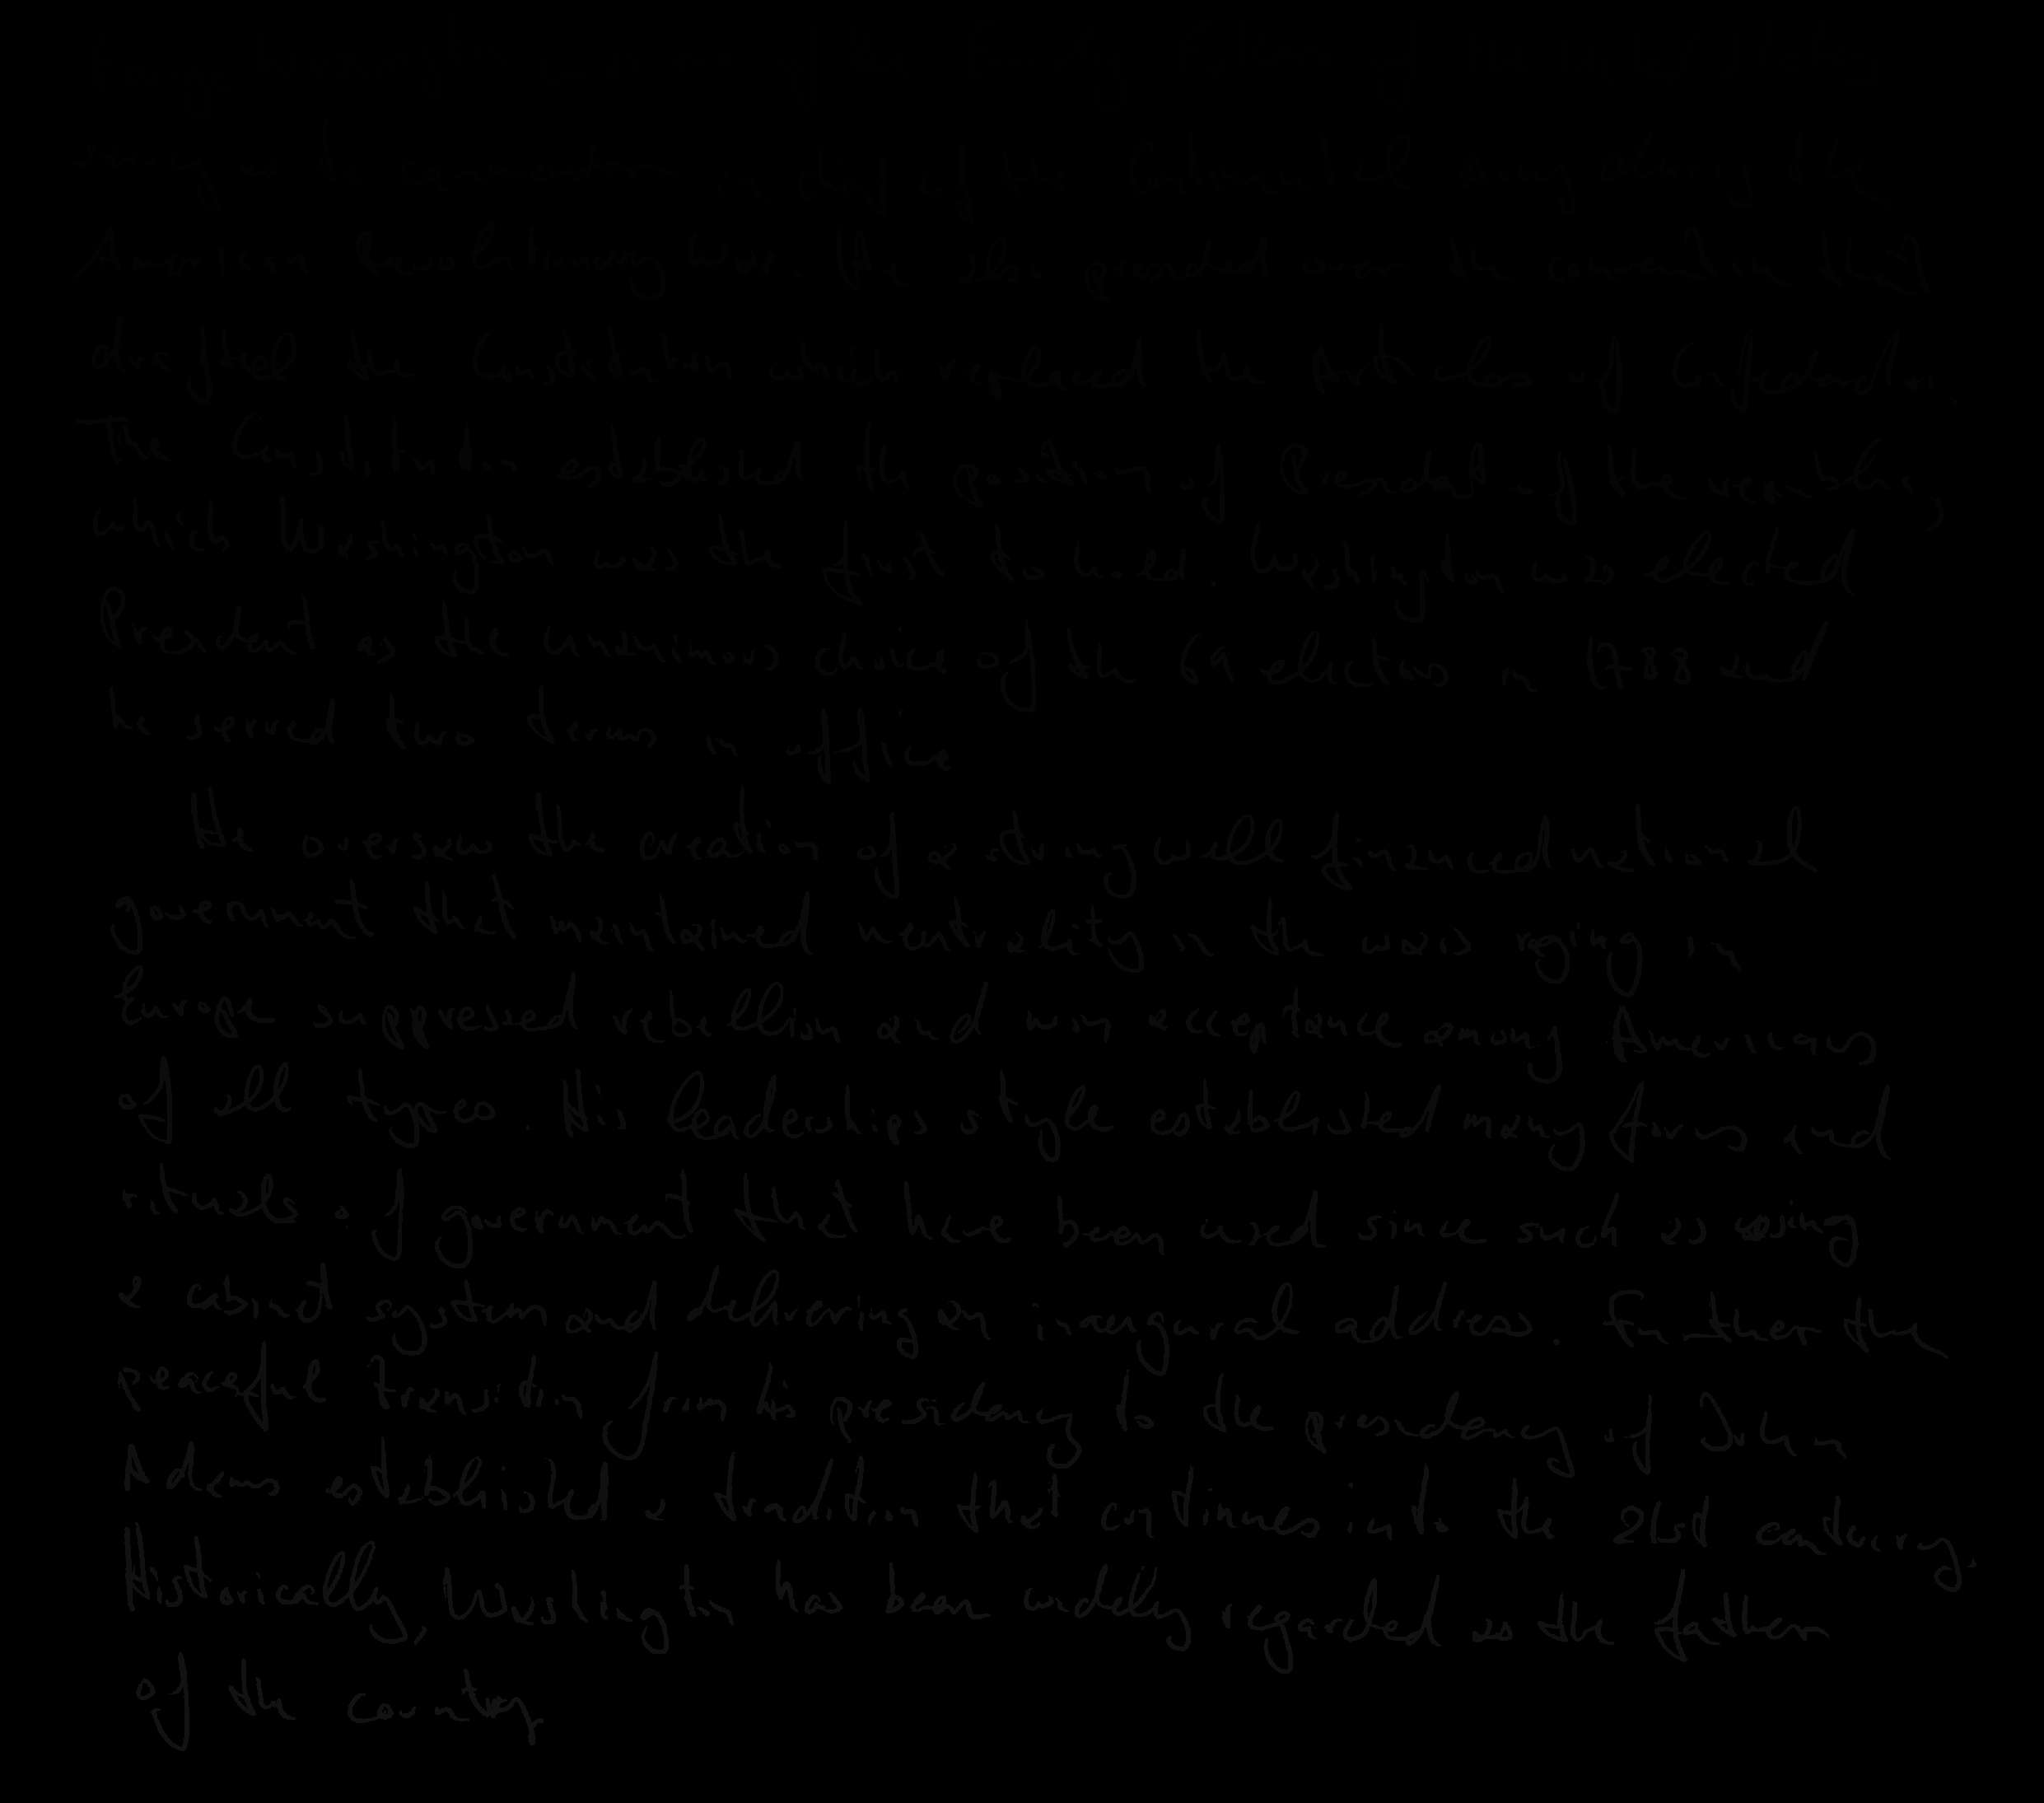 George Washington was one of the Founding Fathers of the United States
serving as the commander in chief of the Continental Army during the
American Revolutionary War. He also presided over the convention that
drafted the Constitution which replaced the Articles of Confederation.
The Constitution established the position of President of the republic,
which Washington was the first to hold. Washington was elected
President as the unanimous choice of the 69 electors in 1788 and
he served two terms in office
He oversaw the creation of a strong well financed national
government that maintained neutrality in the wars raging in
Europe suppressed rebellion and won acceptance among Americans
of all types. His leaderships style established many forms and
rituals of government that have been used since such as using
a cabinet system and delivering an inaugural address. Further the
peaceful transition from his presidency to the presidency of John
Adams established a tradition that continues into the 21st century.
Historically, Washington has been widely regarded as the father
of the country